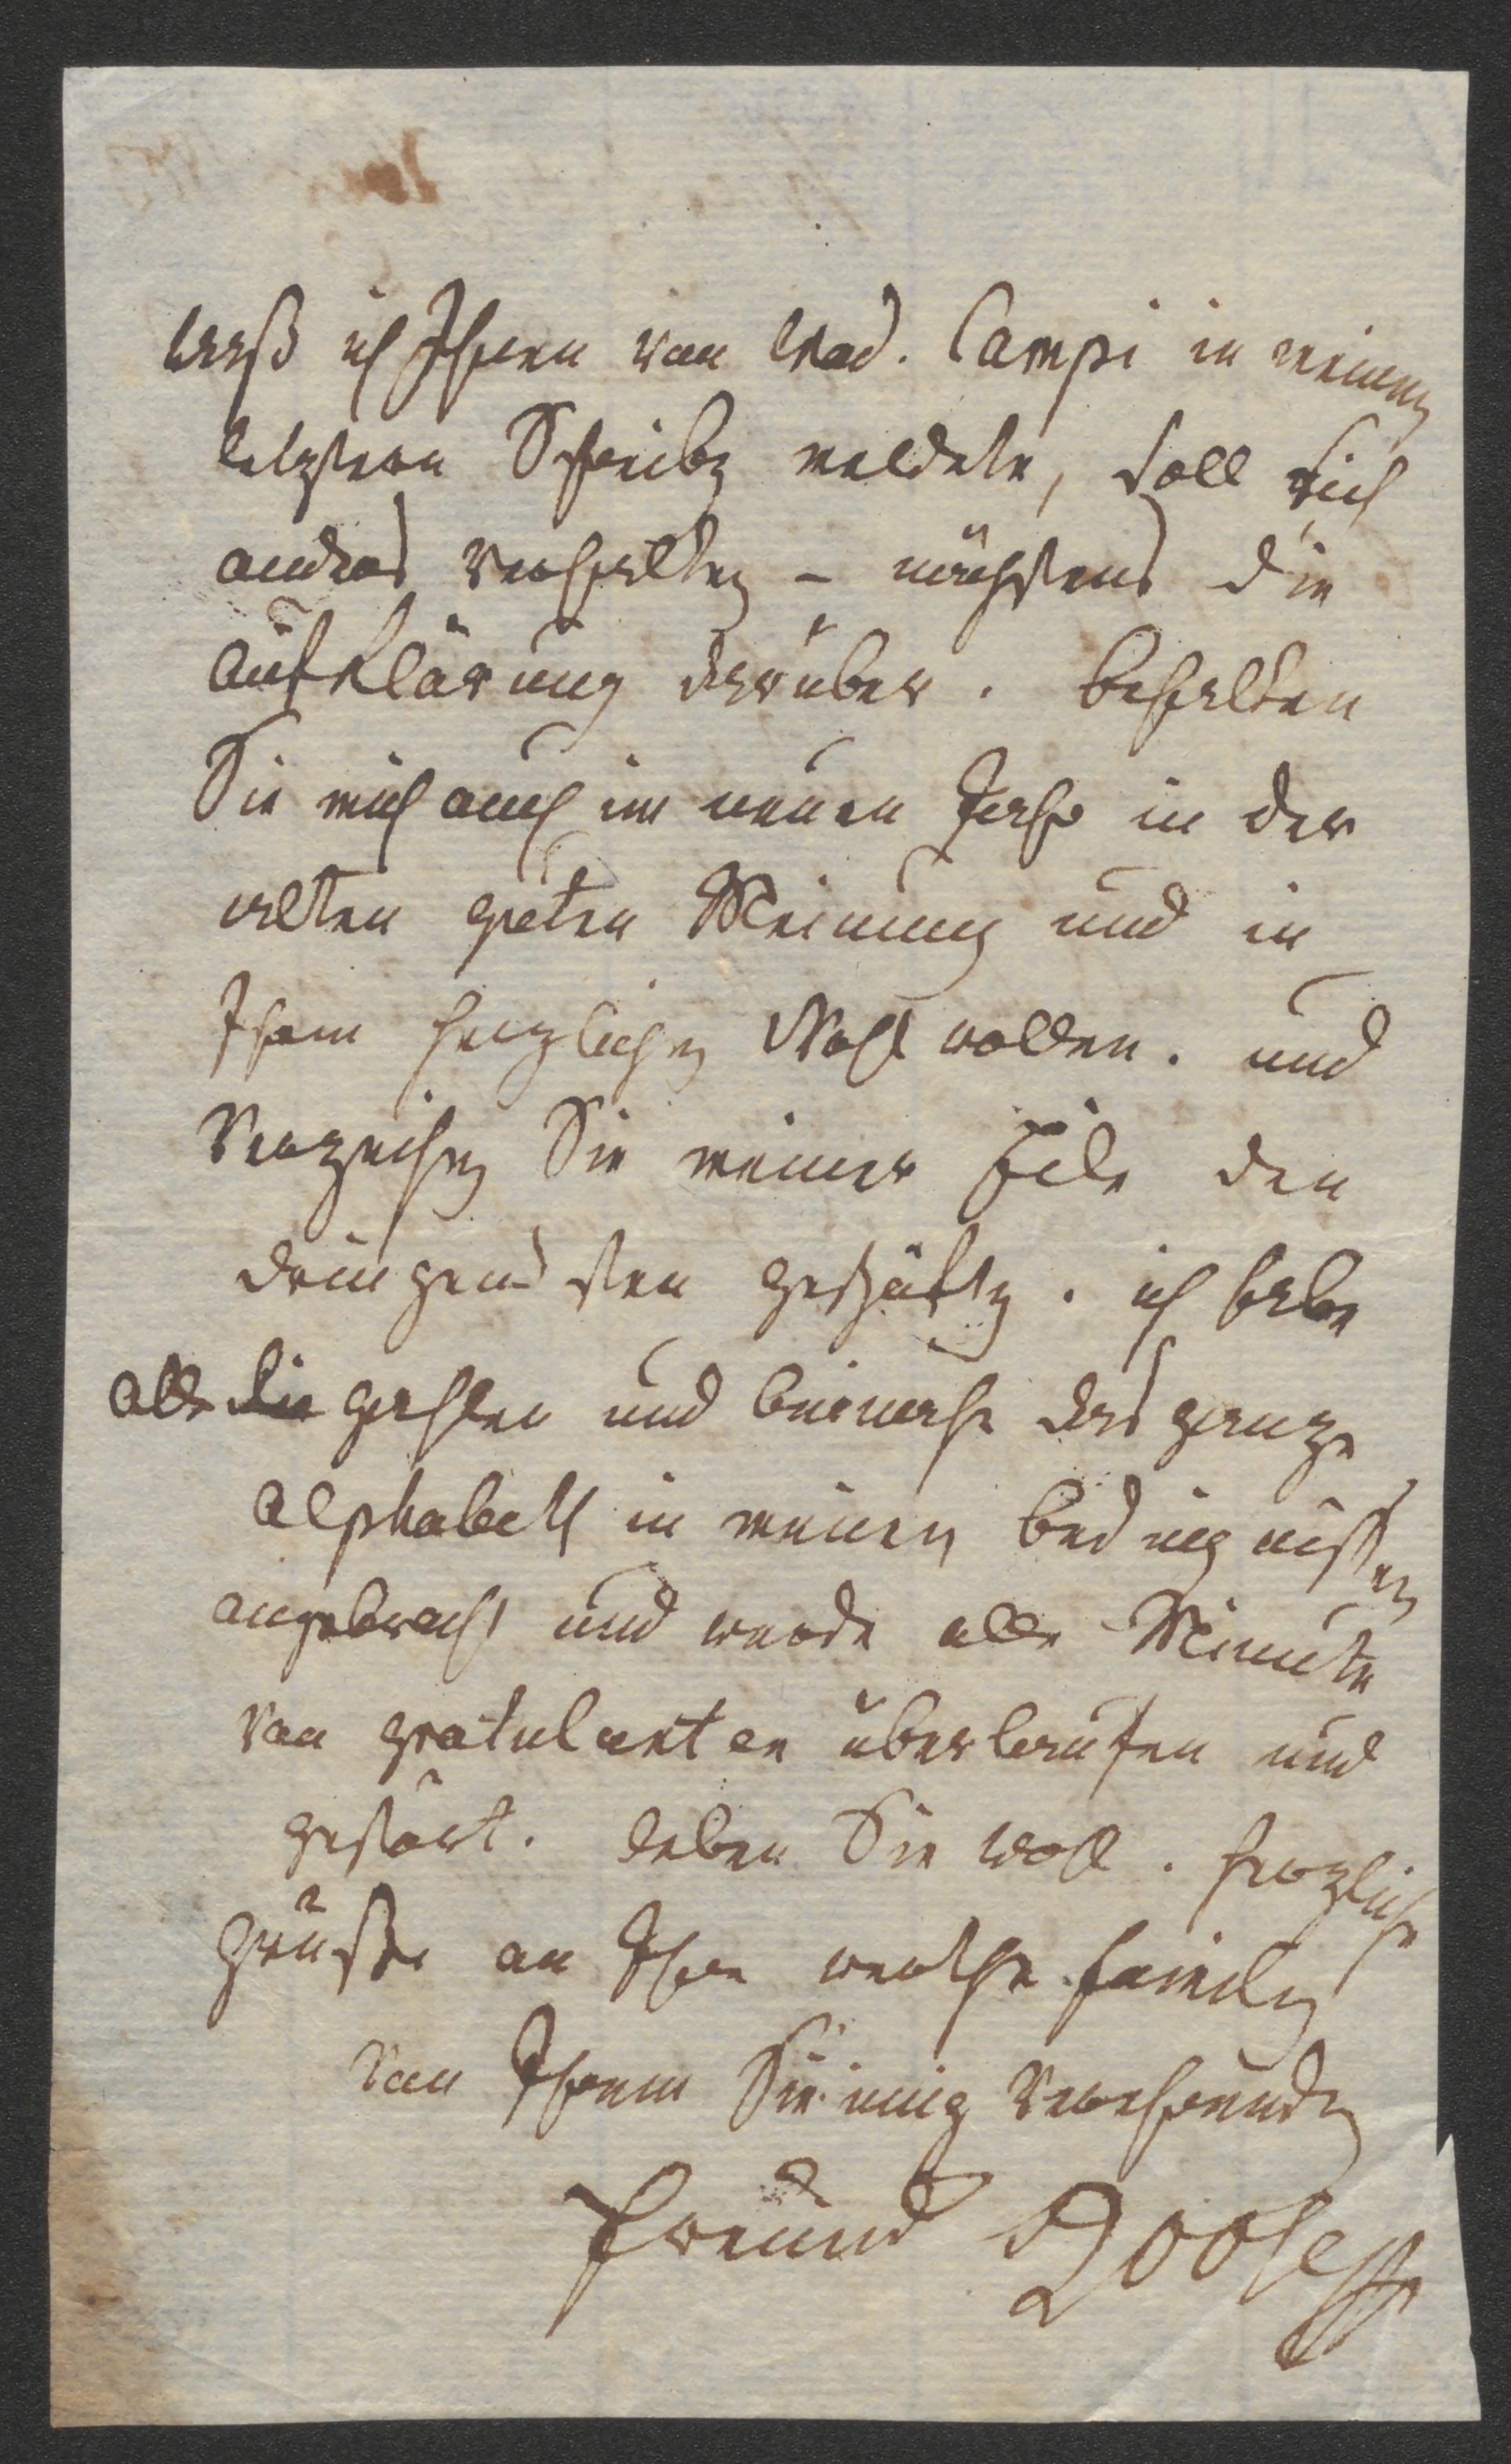 waß ich Ihnen von Mad. Campi in meinem
letztern Schreiben meldete, soll sich
anders verhalten – nächstens die
Aufklärung darüber. Behalten
Sie mich auch im neuen Jahr in der
alten guten Meinung und in
Ihrem herzlichen Wohlwollen. und
Verzeihen Sie meiner Eile den
dringendsten geschäften. ich habe
alle die zahlen und beinahe das ganze
Alphabeth in meinen bedingnissen
angebracht und werde alle Minute
von gratulanten überlaufen und
gestört. leben Sie wohl. herzliche
grüsse an Ihre werthe familie
von Ihrem Sie innig verehrenden
Freund Roose